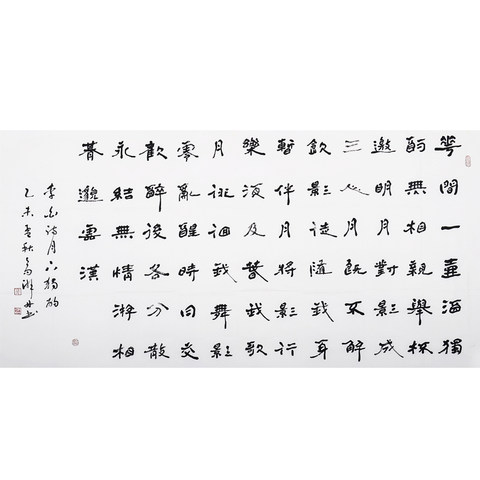 華間一壺酒獨
酌無相親舉杯
邀明月對影成
三人月既不解
飲影徒隨我身
暫伴月將影行
樂須及春我歌
月徘徊我舞影
零亂醒時同交
歡醉後各分散
永結無情游相
朞邈雲漢
李白诗月下獨酌
乙未孟秋